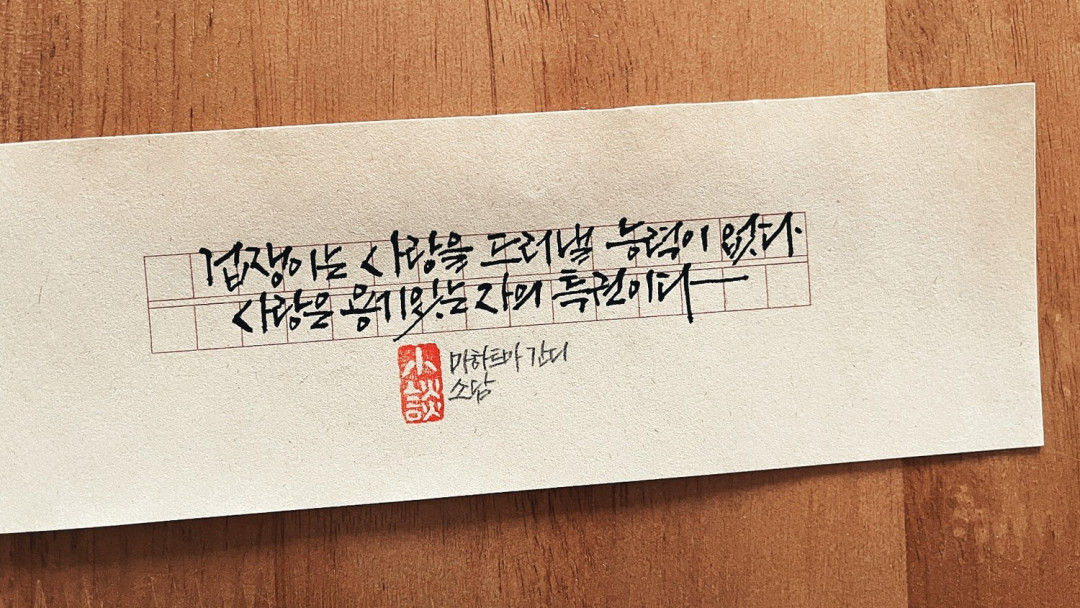 겁쟁이는 사랑을 드러낼 능력이 없다.
사랑은 용기있는 자의 특권이다
小談
마하트마 간디
소담